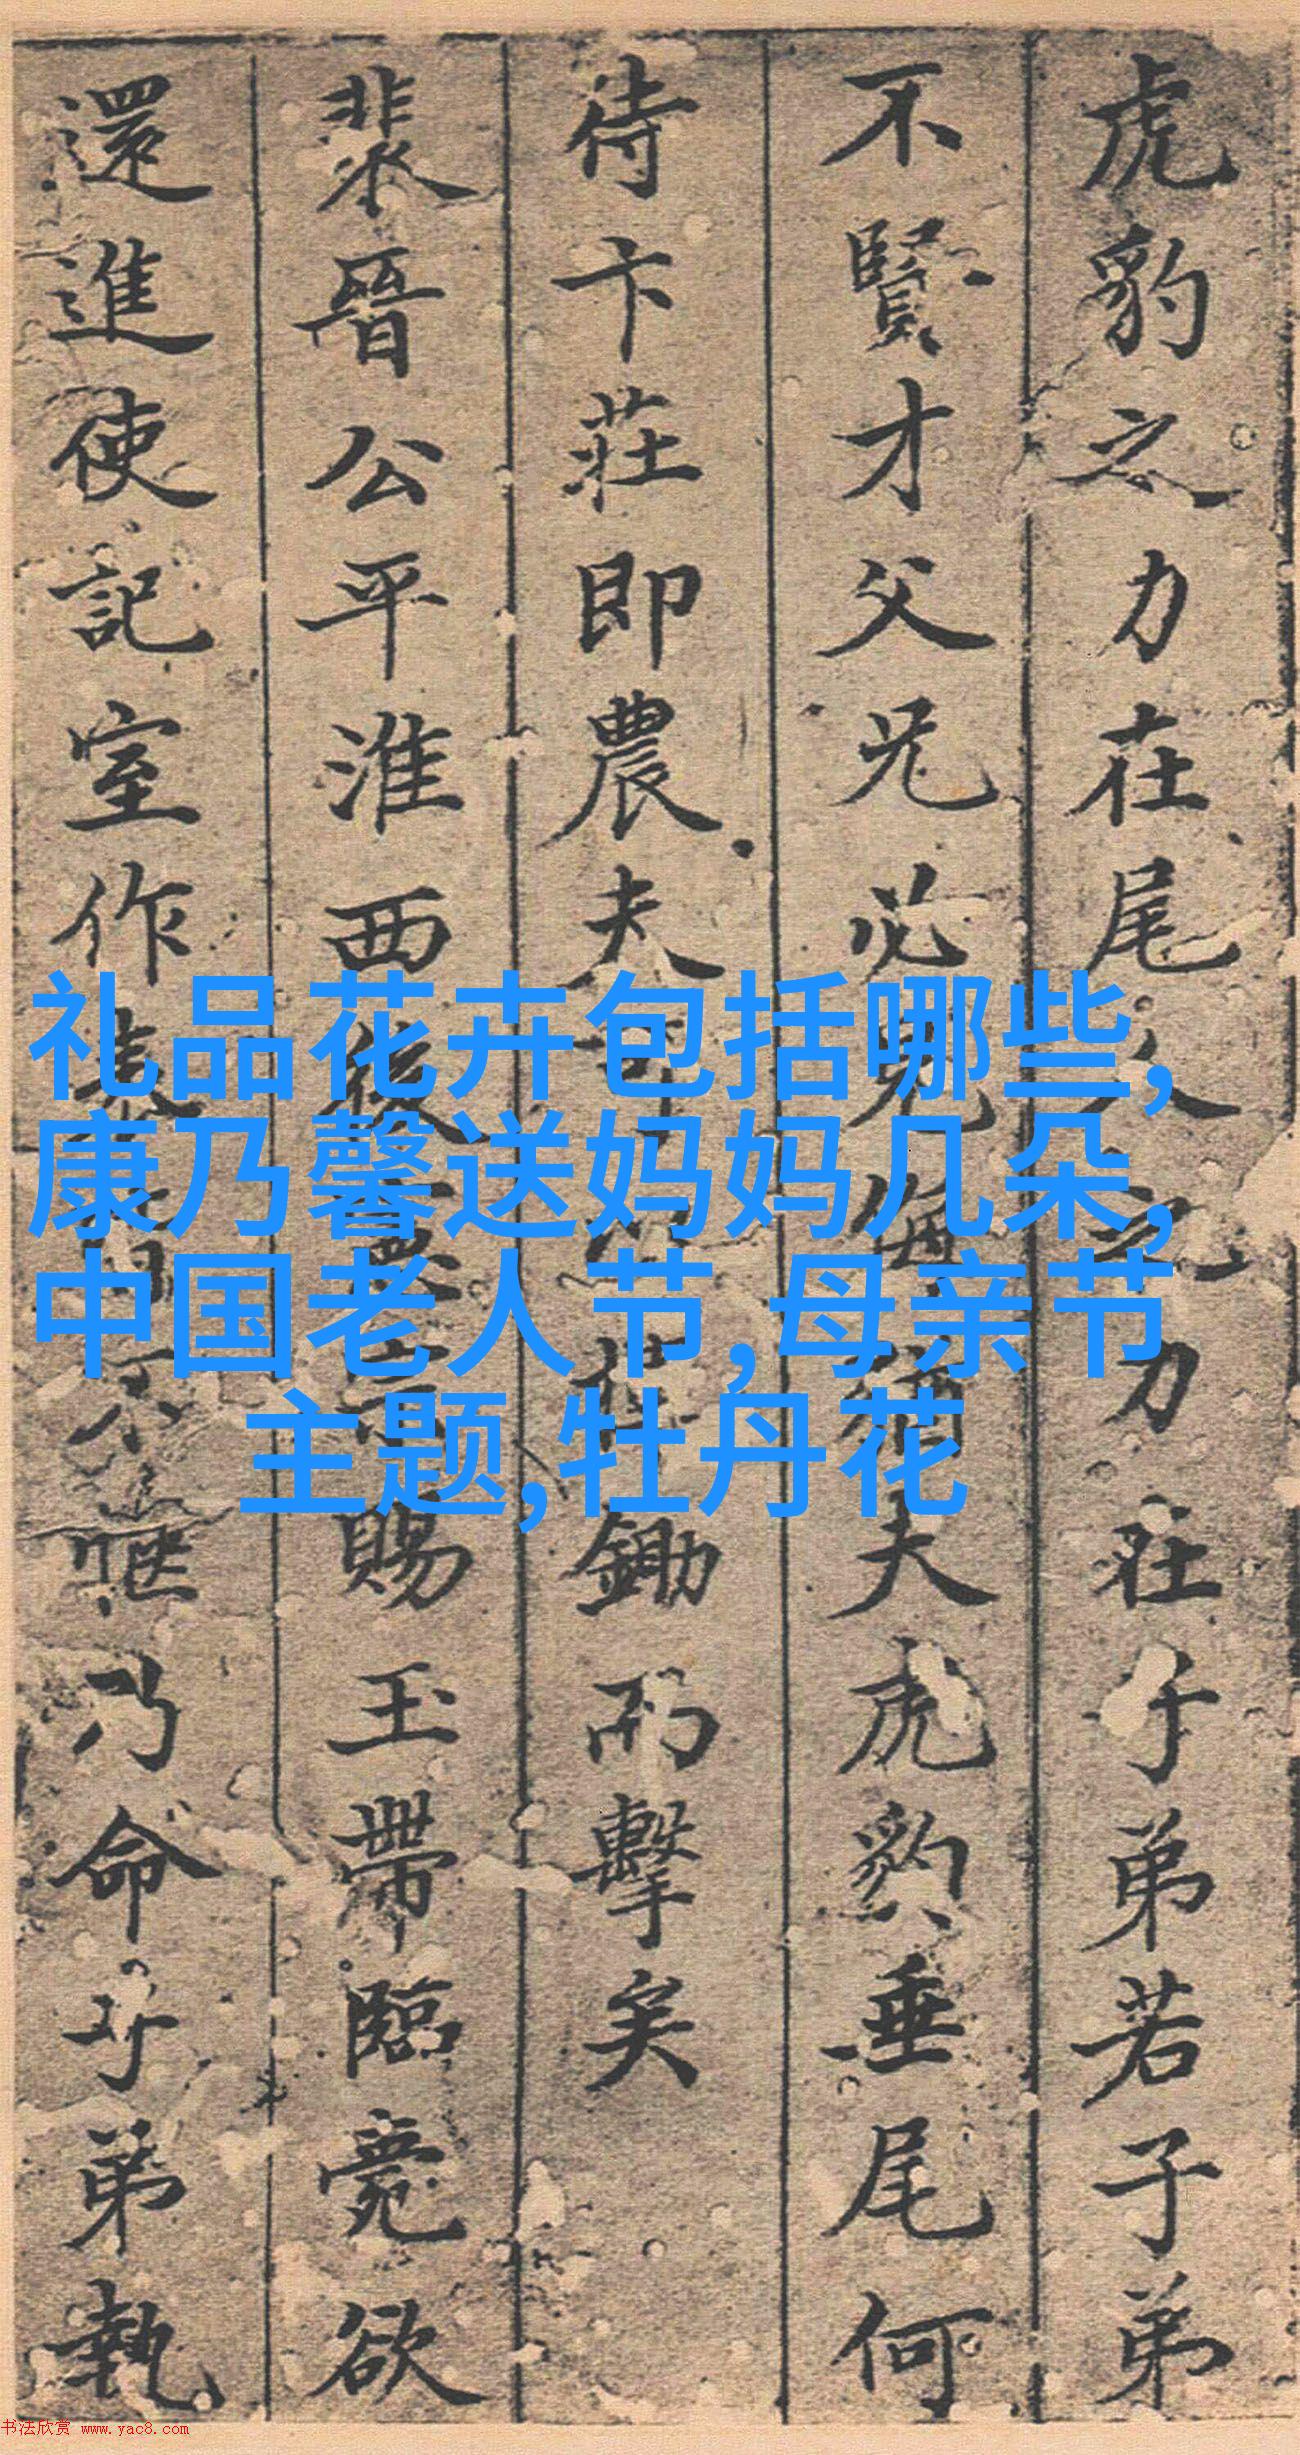 虎豹之力在尾人之力在子弟若子弟
不賢才父兄必見侮
夫虎豹垂尾何
待卞莊即農夫可
鋤而擊矣
裴晉公平淮西後
賜玉帶臨薨欲
還進使記室作表
乃命子弟執
礼品花卉包括哪些,
康乃馨送妈妈几朵,
中国老人节,母亲节
主题,牡丹花
书法欣赏 www.yac8.com